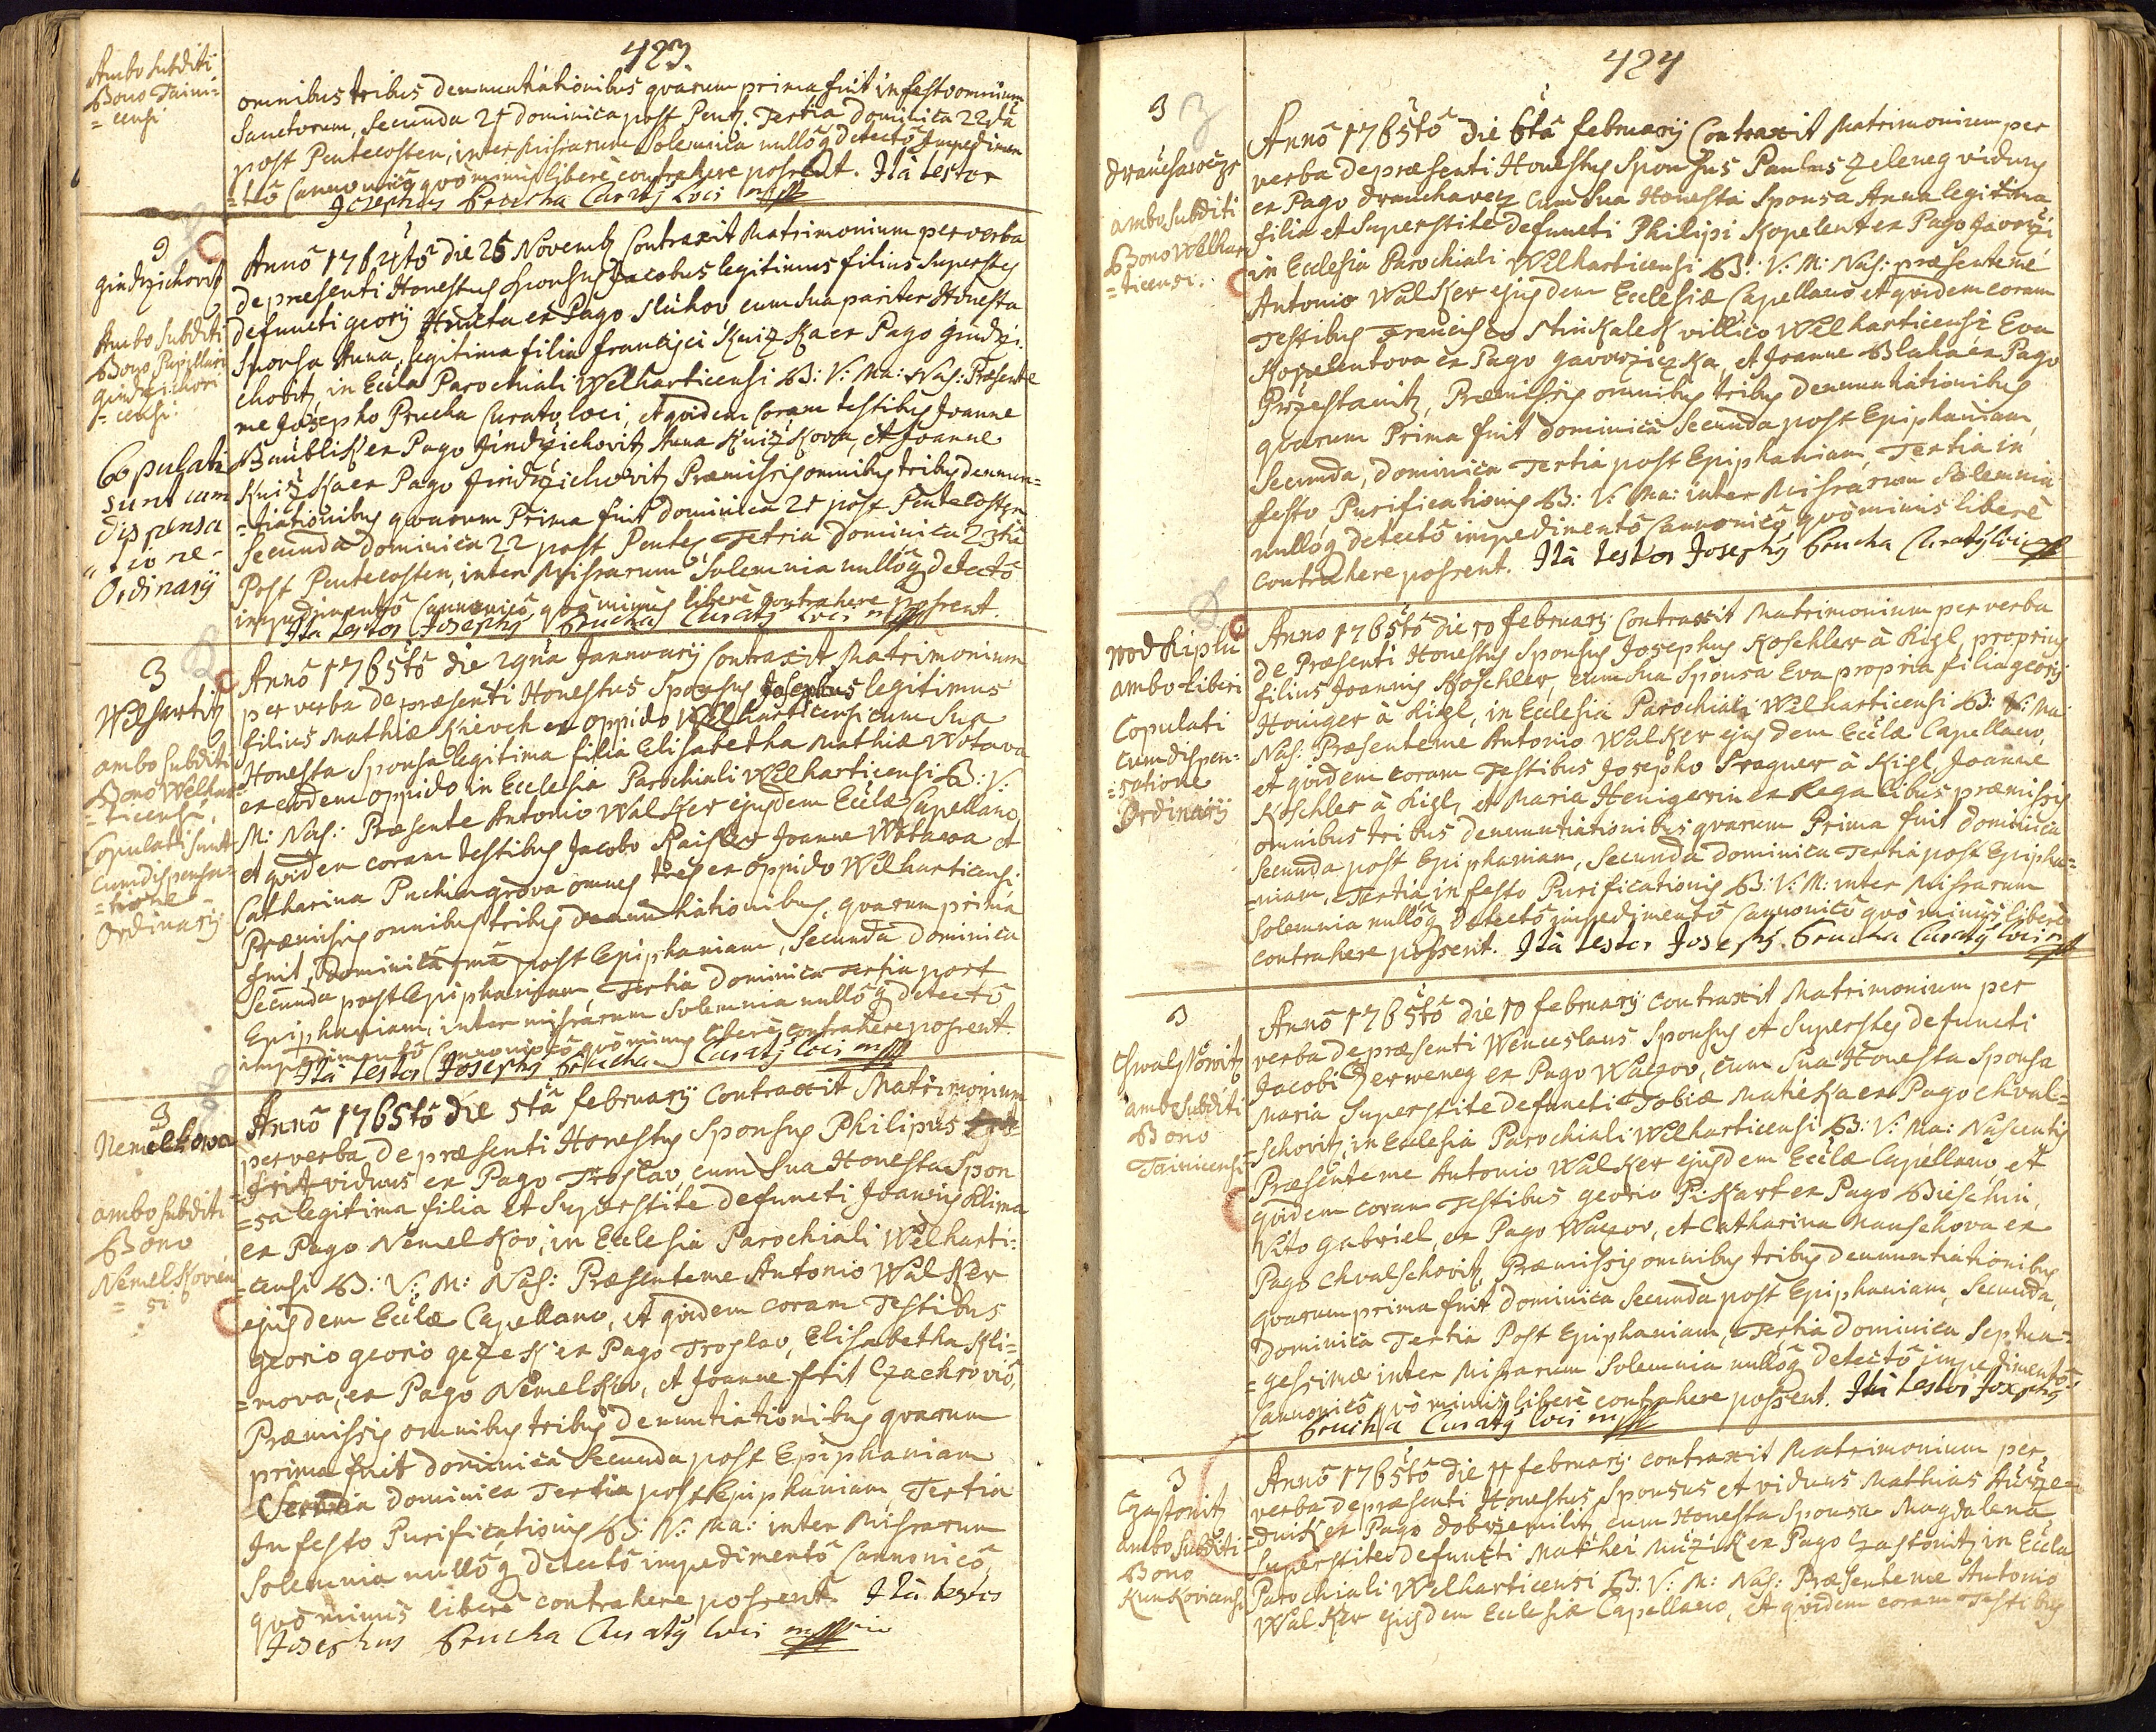 423.
Ambo subditi
Bono Taini=
=censi
omnibus tribus denuntiationibus qvarum prima fuit in festo omnium
Sanctorum, Secunda 21 dominica post Pent. Tertia Dominica 22da
post Pentecosten, inter Missarum Solemnia nullôq detectô Impedimen
=tô Cannonicô qvominus liberè contrahere possent. Ità testor
Josephus Prucha Curatq Loci mpp
9
Gindrzichovitz
Ambo Subditi
Bono Pupillari
Gindrzichovi
=censi.
Copulati
sunt cum
dispensa
tione
Ordinarij
Annô 1764tô die 25 Novemb Contraxit Matrimonium per verba
de præsenti Honestus Sponsus Jacobus legitimus filius Superstes
defuncti georij Hruta ex Pago Sluhov cum sua pariter Honesta
Sponsa Anna, legitima filia francisci Knizka ex Pago Gindrzi
chovit, in Eccla Parochiali Welharticensi B: V: Ma: Nas: Præsente
me Josepho Prucha Curato loci, et qvidem Coram testibus Joanne
Baublik ex Pago Jindrzichovitz Anna Knizkova, et Joanne
Knizka ex Pago Jindrzichovitz Præmissis omnibus tribus denun=
=tiationibus qvarum Prima fuit Dominica 21 post Pentecosten
Secunda Dominica 22 post Pentec Tetria Dominica 23tia
Post Pentecosten, inter Missarum Solemnia nullôq detectô
impedimentô Cannonicô, qvò minus liberè contrahere possent.
Ita testor Josephq Prucha Curatq Loci mpp
3
Welhartitz
ambo subditi
Bono Welhar=
=ticensi,
Copulati sunt
cum dispensa=
=tione
Ordinarij
Annô 1765tô die 29na Jannuarij Contraxit Matrimonium
per verba de præsenti Honestus Sponsus Josephus legitimus
filius Mathiæ Kievch ex oppido Welharticensi cum Sua
Honesta Sponsa legitima filia Elisabetha Mathiæ Wotava
ex eodem oppido in Ecclesia Parochiali Welharticensi B: V:
M: Nas: Præsente Antonio Walker ejusdem Ecclæ Capellano,
et qvidem coram testibus Jacobo Kaiser Joanne Wotawa et
Catharina Puchingrova omnes tres ex oppido Welharticensi
Præmissis omnibus tribus denuntiationibus, qvarum prima
fuit, Dominica 1ma post Epiphaniam, Secunda Dominica
Secunda post Epiphaniam, Tertia Dominica tertia post
Epiphaniam, inter missarum Solemnia nullôq detectô
impedimentô Cannonicô qvò minus liberè contrahere possent.
Ità testor Josephq Prucha Curatq Loci mpp
3
Nemelkowa
ambo subditi
Bono
Nemelkovien
=si
Annô 1765tô die 5tâ februarij Contraxit Matrimonium
per verba de præsenti Honestus Sponsus Philipus
Frit viduus ex Pago Troslav, cum Sua Honesta Spon
=sa legitima filia et Superstite defuncti Joannis Klima
ex Pago Nemelkov, in Ecclesia Parochiali Welharti=
=censi B: V: M: Nas: Præsente me Antonio Walker
ejusdem Ecclæ Capellano, et qvidem coram Testibus
Georio georio gezek ex Pago Troslav, Elisabetha Kli=
=mova, ex Pago Nemelkov, et Joanne frit Czachrovio,
Præmissis omnibus tribus denuntiationibus qvarum
prima fuit dominica Secunda post Epiphaniam
Dominica Tertia post Epiphaniam, Tertia
In festo Purificationis B: V: Ma: inter Missarum
Solemnia nullôq detectô impedimentô Cannonicô
qvô minus liberè contrahere possent. Ità testor
Josephus Prucha Curatq loci mpp
424
3
Drauchawecz
ambo subditi
Bono Welhar
=ticensi.
Annô 1765tô die 6tâ februarij Contraxit Matrimonium per
verba de præsenti Honestus Sponsus Paulus Zeleneg viduus
ex Pago Drauchavez cum Sua Honesta Sponsa Anna legitima
filia et Superstite defuncti Philipi Kopelent ex Pago Javorzi
in Ecclesia Parochiali Welharticensi B: V: M: Nas: præsente me
Antonio Walker ejusdem Ecclesiæ Capellano et qvidem coram
Testibus Francisco Strukalek villico Welharticensi Eva
Kopelentova ex Pago gavorziczka, et Joanne Blaha ex Pago
Przestanitz, Præmissis omnibus tribus denuntiationibus
qvarum Prima fuit dominica Secunda post Epiphaniam,
Secunda, dominica Tertia post Epiphaniam, Tertia in
festo Purificationis B: V: Ma: inter Missarum Solemnia
nullôq detectô impedimentô Cannonicô qvô minus liberè
contrahere possent. Ità testor Josephq Prucha Curatq loci mpp
nod Kiplu
ambo Liberi
Copulati
cum dispen=
=satione
Ordinarij
Anno 1765tô die 10 februarij Contraxit Matrimonium per verba
de Præsenti Honestus Sponsus Josephus Koschler à Kigl, proprius
filius Joannis Koschler, cum Sua Sponsa Eva propria filia georij
Honiger à Kigl, in Ecclesia Parochiali Welharticensi B: V: Ma
Nas: Præsente me Antonio Walker ejusdem Ecclæ Capellano,
et qvidem coram Testibus Josepho Pragner à Kigl, Joanne
Koschler à Kigl, et Maria Henigerin ex Regalibus præmissis
omnibus tribus denuntiationibus qvarum Prima fuit dominica
Secunda post Epiphaniam, Secunda Dominica Tertia post Epipha=
=niam, Tertia in festo Purificationis B: V: M: inter Missarum
Solemnia nullôq detectô impedimentô Cannonicô qvô minus liberè
contrahere possent. Ità testor Josephq. Prucha Curatq loci mpp
3
Chwalschovitz
ambo subditi
Bono
Tainicensi
Annô 1765tô die 10 februarij contraxit Matrimonium per
verba de præsenti Wenceslaus Sponsus et Superstes defuncti
Jacobi Zerweneg ex Pago Watzov, cum Sua Honesta Sponsa
Maria Superstite defuncti Tobiæ Matieka ex Pago Chval=
=schovitz, in Ecclesia Parochiali Welharticensi B: V: Ma: Nascentis
Præsente me Antonio Walker ejusdem Ecclæ Capellano et
qvidem coram Testibus georio Pikart ex Pago Bieschin,
Vito gabriel, ex Pago Watzov, et Catharina Manschova ex
Pago Chvalschovitz, Præmissis omnibus tribus denuntiationibus
qvarum prima fuit dominica Secunda post Epiphaniam, Secunda,
Dominica Tertia Post Epiphaniam, Tertia Dominica Septua=
=gesimæ inter Missarum Solemnia nullôq detectô impedimentô
Cannonicô qvô minus liberè contrahere possent. Ità testor Josephq
Prucha Curatq loci mpp
3
Czastonitz
ambo subditi
Bono
Kunkovicensi
Annô 1765tô die 11 februarij contraxit Matrimonium per
verba de præsenti Honestus Sponsus et viduus Mathias Aurze=
=dnik ex Pago Dobrzemilitz cum Honesta Sponsa Magdalena
Superstite defuncti Mathei Muzik ex Pago Czastonitz in Eccla
Parochiali Welharticensi B: V: M: Nas: Præsente me Antonio
Walker ejusdem Ecclesiæ Capellano, et qvidem coram Testibus